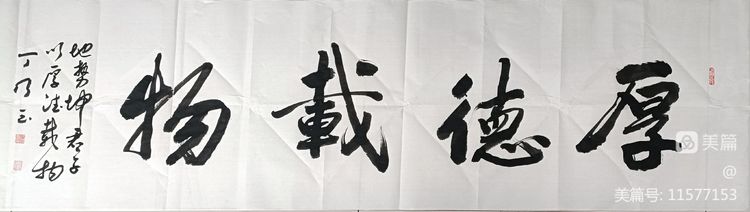 厚德載物
地势坤君子
以厚德载物
美篇
@
美篇号: 11577153